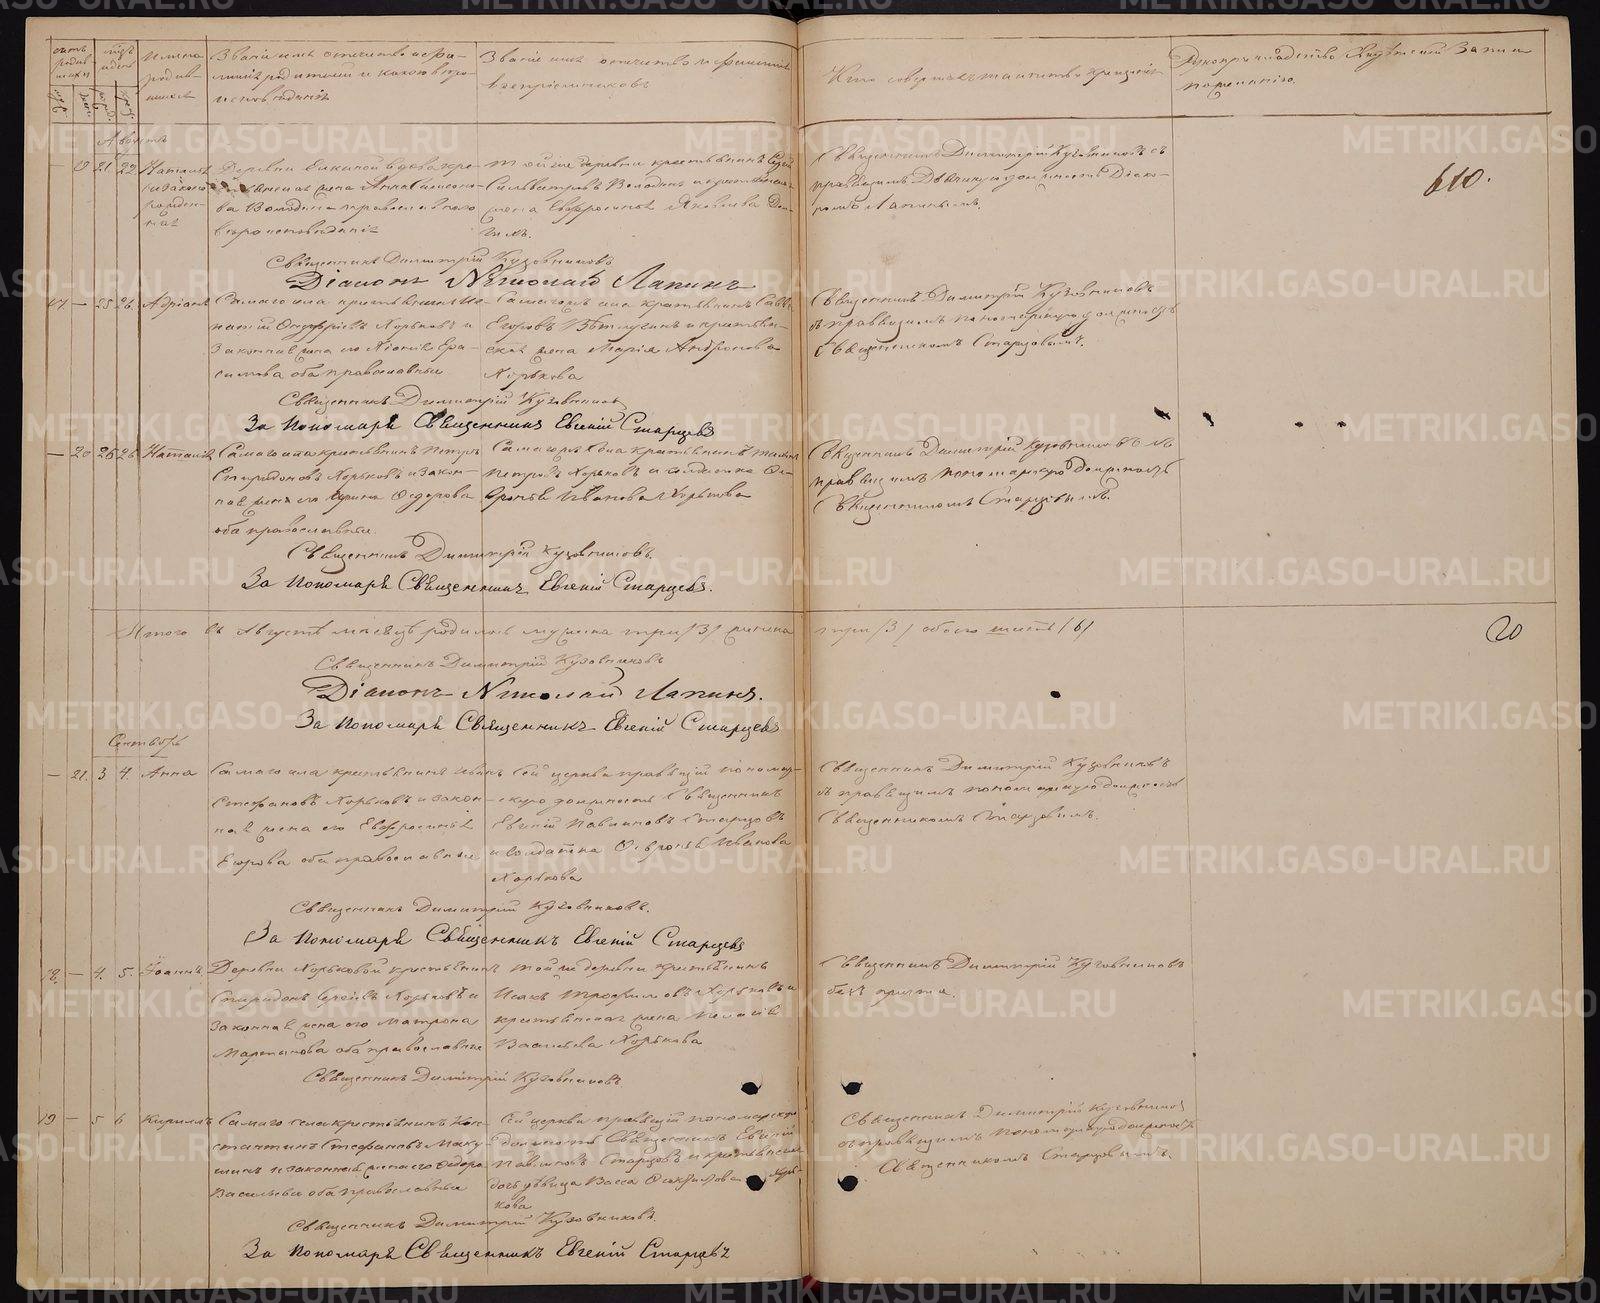 Имена родив-шихся
Званiе имя отчество и фамилiя родителей и какого вероисповеданiя
Званiе имя отчество и фамилiя воспрiемниковъ
Кто совершалъ таинство крещенiя
Рукоприкладство свидетелей записи по желанiю
Августъ
19 21 22 Наталiя
Деревни
вдова кре-
стьянская жена Анна
ва Володина православнаго
вероисповеданiя
Той же деревни крестьянинъ
Володинъ и крестьянская
жена Евфросинiя Яковлева
Священникъ Димитрiй Кузовниковъ съ
правящимъ должность Дiако-
номъ Лапинымъ.
610.
Священникъ Димитрiй Кузовниковъ
Дiаконъ Николай Лапинъ
17 — 25 26 Адрiанъ
Самаго села крестьянинъ
Хорьковъ и
законная жена его
оба православные
Самаго села крестьянинъ Савва
Егоровъ и крестьян-
ская жена Марiя Андронова
Хорькова
Священникъ Димитрiй Кузовниковъ
съ правящимъ пономарскую должность
Священникомъ Старцовымъ.
Священникъ Димитрiй Кузовниковъ
За Пономаря Священникъ Евгенiй Старцевъ
— 20 26 26 Наталiя
Самаго села крестьянинъ Петръ
Спиридоновъ Хорьковъ и закон-
ная жена его Ирина Федорова
оба православные.
Самаго села крестьянинъ
Петровъ Хорьковъ и солдатка Фе-
вронiя Иванова Хорькова
Священникъ Димитрiй Кузовниковъ съ
правящимъ пономарскую должность
Священникомъ Старцовымъ.
Священникъ Димитрiй Кузовниковъ.
За Пономаря Священникъ Евгенiй Старцевъ.
Итого въ Августе месяце родилось мужеска три /3/ женска три /3/ обоего шесть /6/
20
Священникъ Димитрiй Кузовниковъ
Дiаконъ Николай Лапинъ.
За Пономаря Священникъ Евгенiй Старцевъ
Сентябрь
— 21. 3 4. Анна
Самаго села крестьянинъ Иванъ
Стефановъ Хорьковъ и закон-
ная жена его Евфросинiя
Егорова оба православные
Сей церкви правящiй пономар-
скую должность Священникъ
Евгенiй Павлиновъ Старцовъ
и солдатка Февронiя Иванова
Хорькова
Священникъ Димитрiй Кузовниковъ
съ правящимъ пономарскую должность
Священникомъ Старцовымъ.
Священникъ Димитрiй Кузовниковъ.
За Пономаря Священникъ Евгенiй Старцевъ
18. — 4. 5. Iоаннъ
Деревни Хорьковой крестьянинъ
Спиридонъ Хорьковъ и
законная жена его Матрона
Мартынова оба православные
Той же деревни крестьянинъ
Исакъ Трофимовъ Хорьковъ и
крестьянская жена Пелагiя
Васильева Хорькова
Священникъ Димитрiй Кузовниковъ
безъ причта.
Священникъ Димитрiй Кузовниковъ.
19 — 5 6 Кириллъ
Самаго села крестьянинъ Кон-
стантинъ Стефановъ
и законная жена его Федора
Васильева оба православные
Сей церкви правящiй пономарскую
должность Священникъ Евгенiй
Павлиновъ Старцовъ и крестьянская
дочь девица Васса Хорь-
кова
Священникъ Димитрiй Кузовниковъ
съ правящимъ пономарскую должность
Священникомъ Старцовымъ.
Священникъ Димитрiй Кузовниковъ.
За Пономаря Священникъ Евгенiй Старцевъ
METRIKI.GASO-URAL.RU